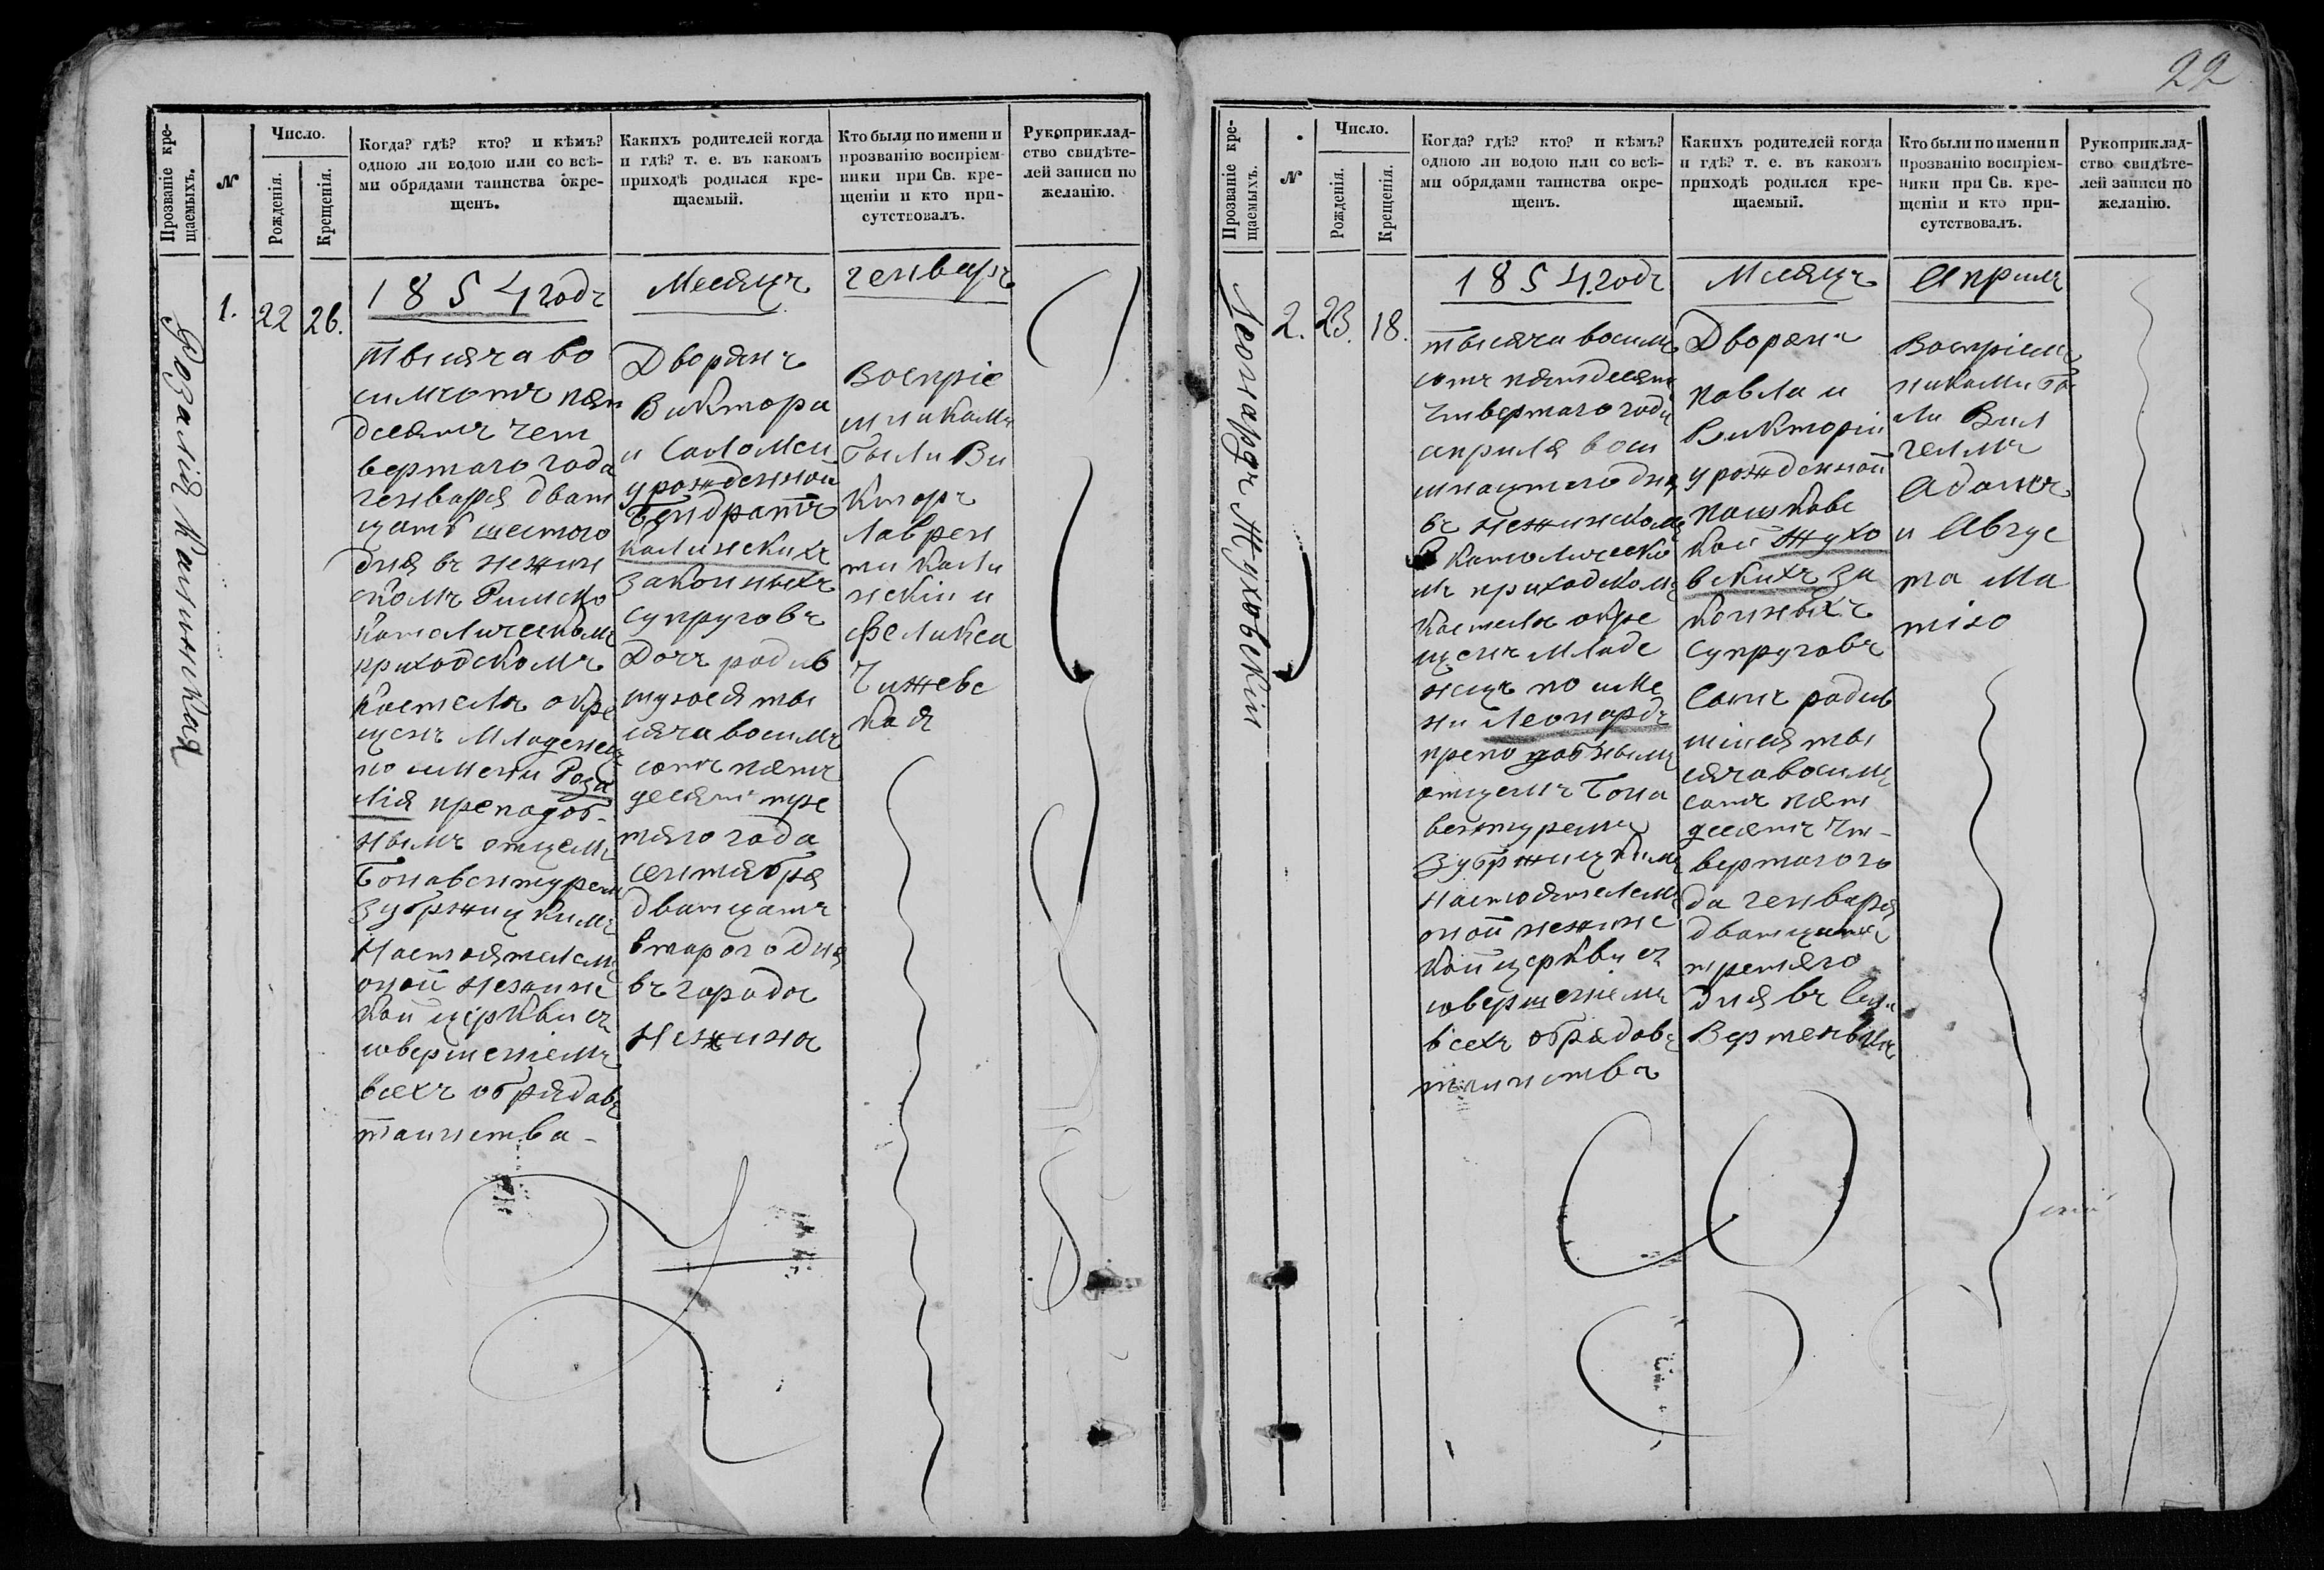 22
Прозваніе кре-
щаемыхъ.
№
Число.
Рожденія.
Крещенія.
Когда? гдѣ? кто? и кѣмъ?
одною ли водою или со всѣ-
ми обрядами таинства окре-
щенъ.
Какихъ родителей когда
и гдѣ? т. е. въ какомъ
приходѣ родился кре-
щаемый.
Кто были по имени и
прозванію воспріем-
ники при Св. кре-
щеніи и кто при-
сутствовалъ.
Рукоприклад-
ство свидѣте-
лей записи по
желанію.
Розалія Калинская
1.
22
26.
1854 годъ
тысяча во
симъсотъ пят
десятъ чет
вертаго года
генваря дват
цатъ шестого
дня въ нежин
скомъ Римско
Католическомъ
приходскомъ
Костелѣ окре
щенъ Младенец
по имени Роза
лія преподоб-
нымъ отцемъ
Бонавентурем
Зубржицкимъ
Настоятелемъ
оной нежинс
кой церкви съ
совершениемъ
всехъ обрядовъ
таинства-
Месяцъ
Дворянъ
Виктора
и Саломеи
урожденной
Бендратъ
Калинскихъ
законныхъ
супруговъ
Дочъ родив
шуюся ты
сяча восимъ
сотъ пятъ
десятъ тре
тяго года
сентября
дватцатъ
втарого дня
въ городѣ
Нежинѣ
генваръ
Воспріе
мниками
были Ви
кторъ
Лаврен
ти Кали
нскіи и
Феликса
Чижевс
кая
Прозваніе кре-
щаемыхъ.
№
Число.
Рожденія.
Крещенія.
Когда? гдѣ? кто? и кѣмъ?
одною ли водою или со всѣ-
ми обрядами таинства окре-
щенъ.
Какихъ родителей когда
и гдѣ? т. е. въ какомъ
приходѣ родился кре-
щаемый.
Кто были по имени и
прозванію воспріем-
ники при Св. кре-
щеніи и кто при-
сутствовалъ.
Рукоприклад-
ство свидѣте-
лей записи по
желанію.
Леонардъ Жуховскіи
2.
23.
18.
1854 годъ
тысяча восимъ
сотъ пятдесятъ
Четвертаго года
априля воси
мнацтаго дня
въ нежинскомъ
Католическо
мъ приходскомъ
Костелѣ окре
щенъ Младе
нецъ по име
ни Леонардъ
преподобнымъ
отцемъ Бона
вентуремъ
Зубржицкимъ
Настоятелемъ
оной нежинс
кой церкви съ
совершениемъ
всехъ обрядовъ
таинства
Месяцъ
Дворянъ
Павла и
Викторіи
урожденной
Пашковс
кой Жухо
вскихъ за
конныхъ
Супруговъ
Сынъ родив
шійся ты
сяча восимъ
сотъ пят
десятъ Чт-
вертаго го
да генваря
дватцатъ
третяго
дня въ Селѣ
Вертеевкѣ
Априлъ
Воспріем
никами бы
ли Вил
гелмъ
Адамъ
и Авгус
та Ма
тізо